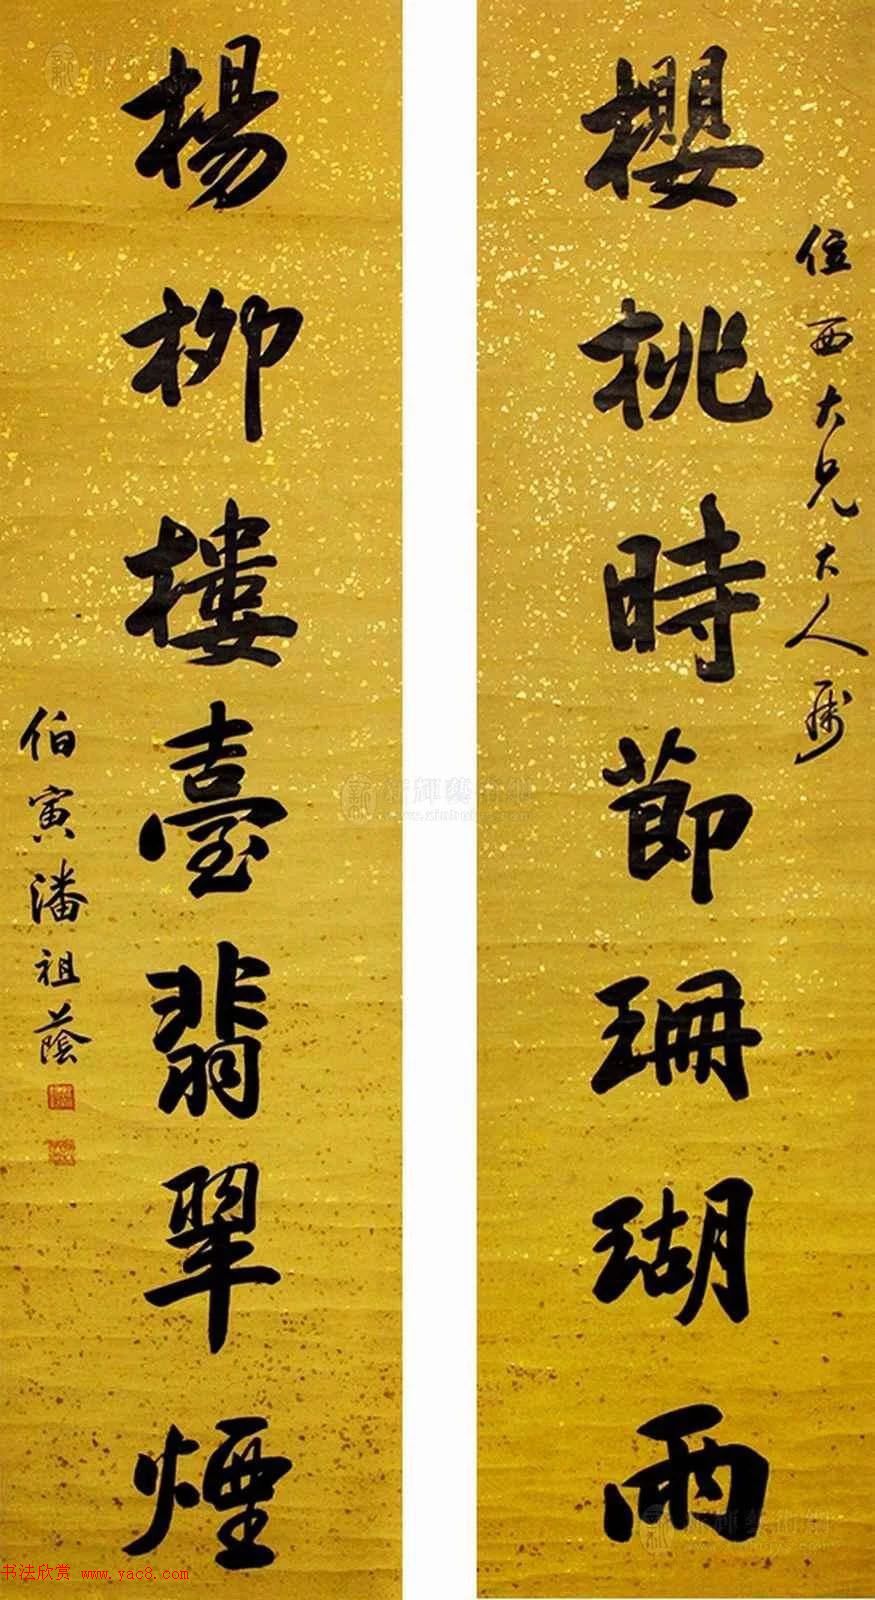 位西大兄大人属
櫻桃時節珊瑚雨
楊柳樓臺翡翠煙
伯寅潘祖蔭
新輝藝術網
书法欣赏 www.yac8.com